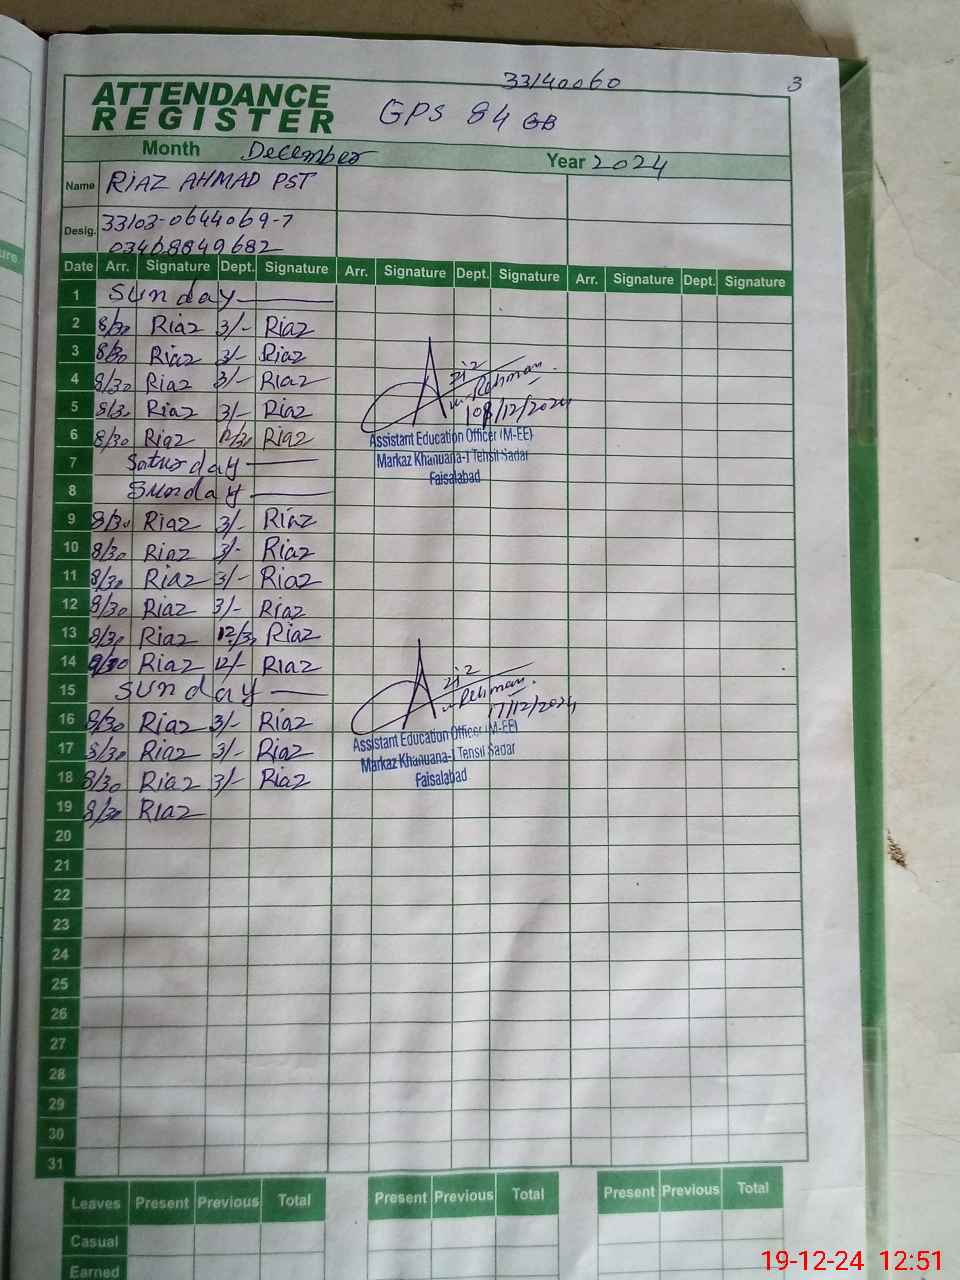 33140060 3
ATTENDANCE
REGISTER GPS 84 GB
Month December Year 2024
Name RIAZ AHMAD PST
Desig. 33103-0644069-7
03468849682
Date Arr. Signature Dept. Signature Arr. Signature Dept. Signature Arr. Signature Dept. Signature
1 Sunday
2 8/30 Riaz 3/- Riaz
3 8/30 Riaz 3/- Riaz
4 8/30 Riaz 3/- Riaz
5 8/30 Riaz 3/- Riaz
6 8/30 Riaz Riaz
7 Saturday
8 Sunday
Aziz
ur Rehman
/12/2024
Assistant Education Officer (M-EE)
Markaz Khanuana-I Tehsil Sadar
Faisalabad
9 8/30 Riaz 3/- Riaz
10 8/30 Riaz 3/- Riaz
11 8/30 Riaz 3/- Riaz
12 8/30 Riaz 3/- Riaz
13 8/30 Riaz 12/30 Riaz
14 8/30 Riaz 12/- Riaz
15 Sunday
16 8/30 Riaz 3/- Riaz
17 8/30 Riaz 3/- Riaz
18 8/30 Riaz 3/- Riaz
19 8/30 Riaz
Aziz
ur Rehman
17/12/2024
Assistant Education Officer (M-EE)
Markaz Khanuana-I Tehsil Sadar
Faisalabad
20
21
22
23
24
25
26
27
28
29
30
31
Leaves Present Previous Total Present Previous Total Present Previous Total
Casual
Earned
19-12-24 12:51